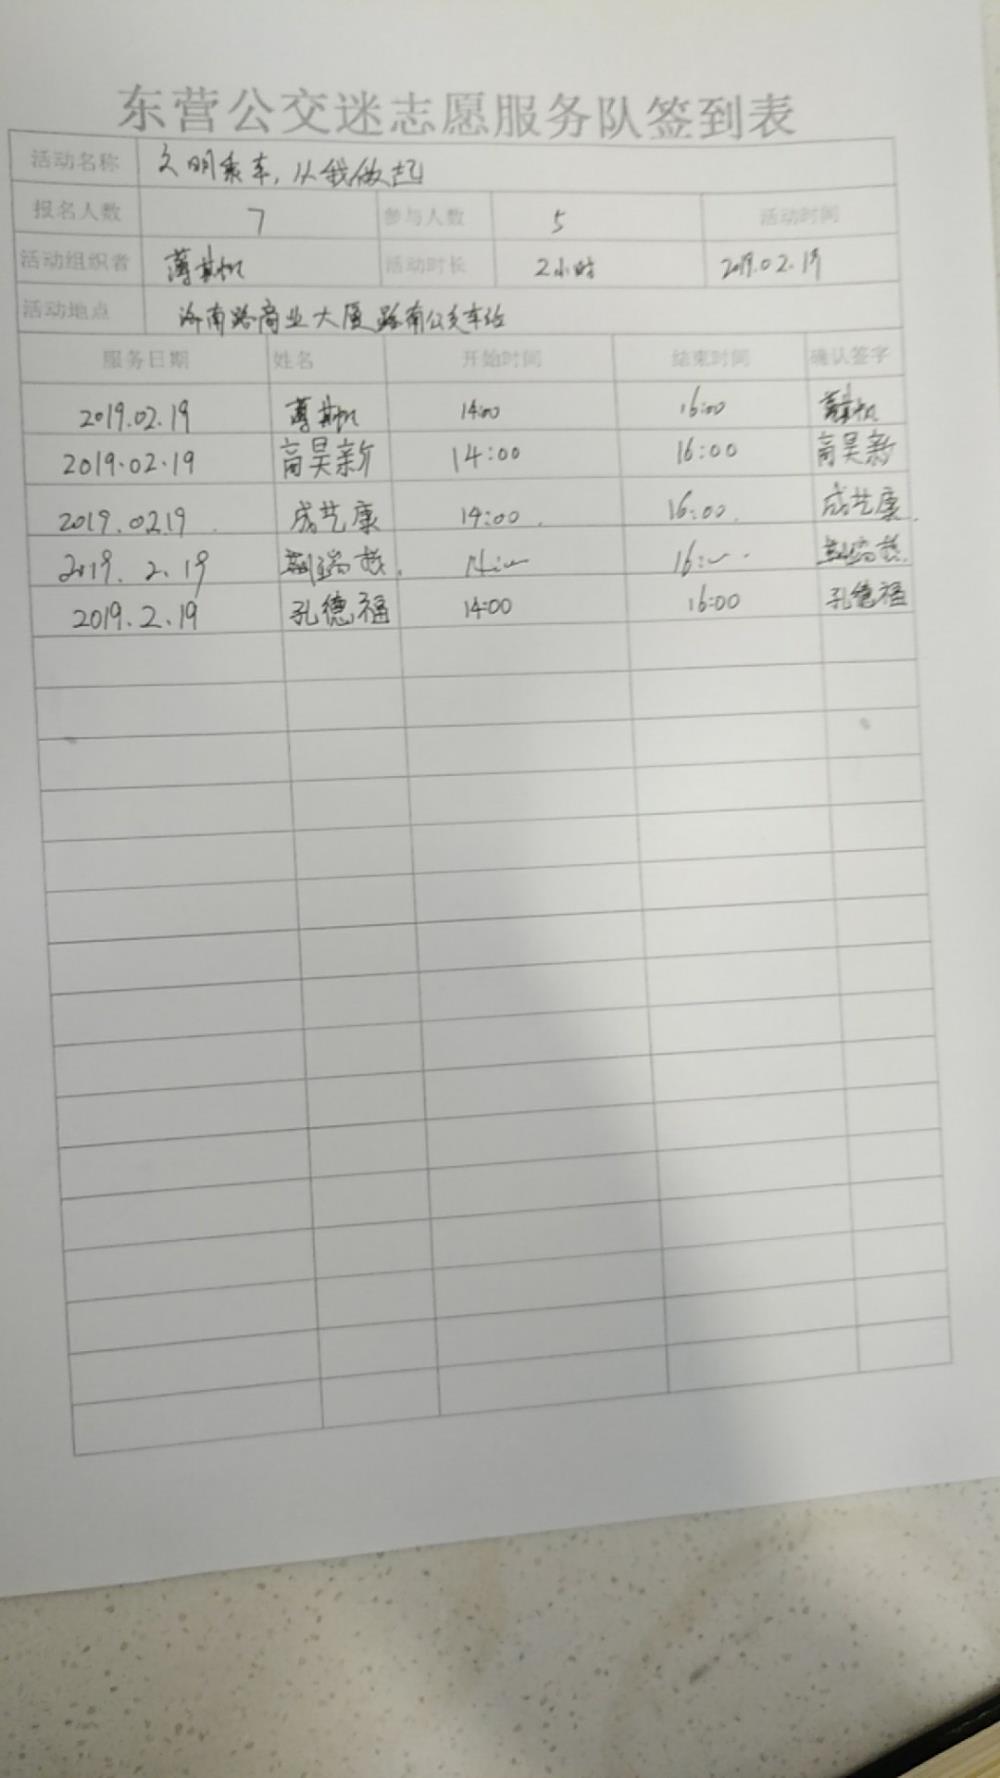 东营公交迷志愿服务队签到表
活动名称 文明乘车,从我做起
报名人数 7 参与人数 5 活动时间
活动组织者 薄其 活动时长 2小时 2019.02.19
活动地点 济南路商业大厦路南公交车站
服务日期 姓名 开始时间 结束时间 确认签字
2019.02.19 薄其 14:00 16:00 薄其
2019.02.19 高昊新 14:00 16:00 高昊新
2019.02.19. 成艺康 14:00. 16:00. 成艺康.
2019. 2. 19 瑞哲. 14: 16: 瑞哲.
2019.2.19 孔德福 14:00 16:00 孔德福